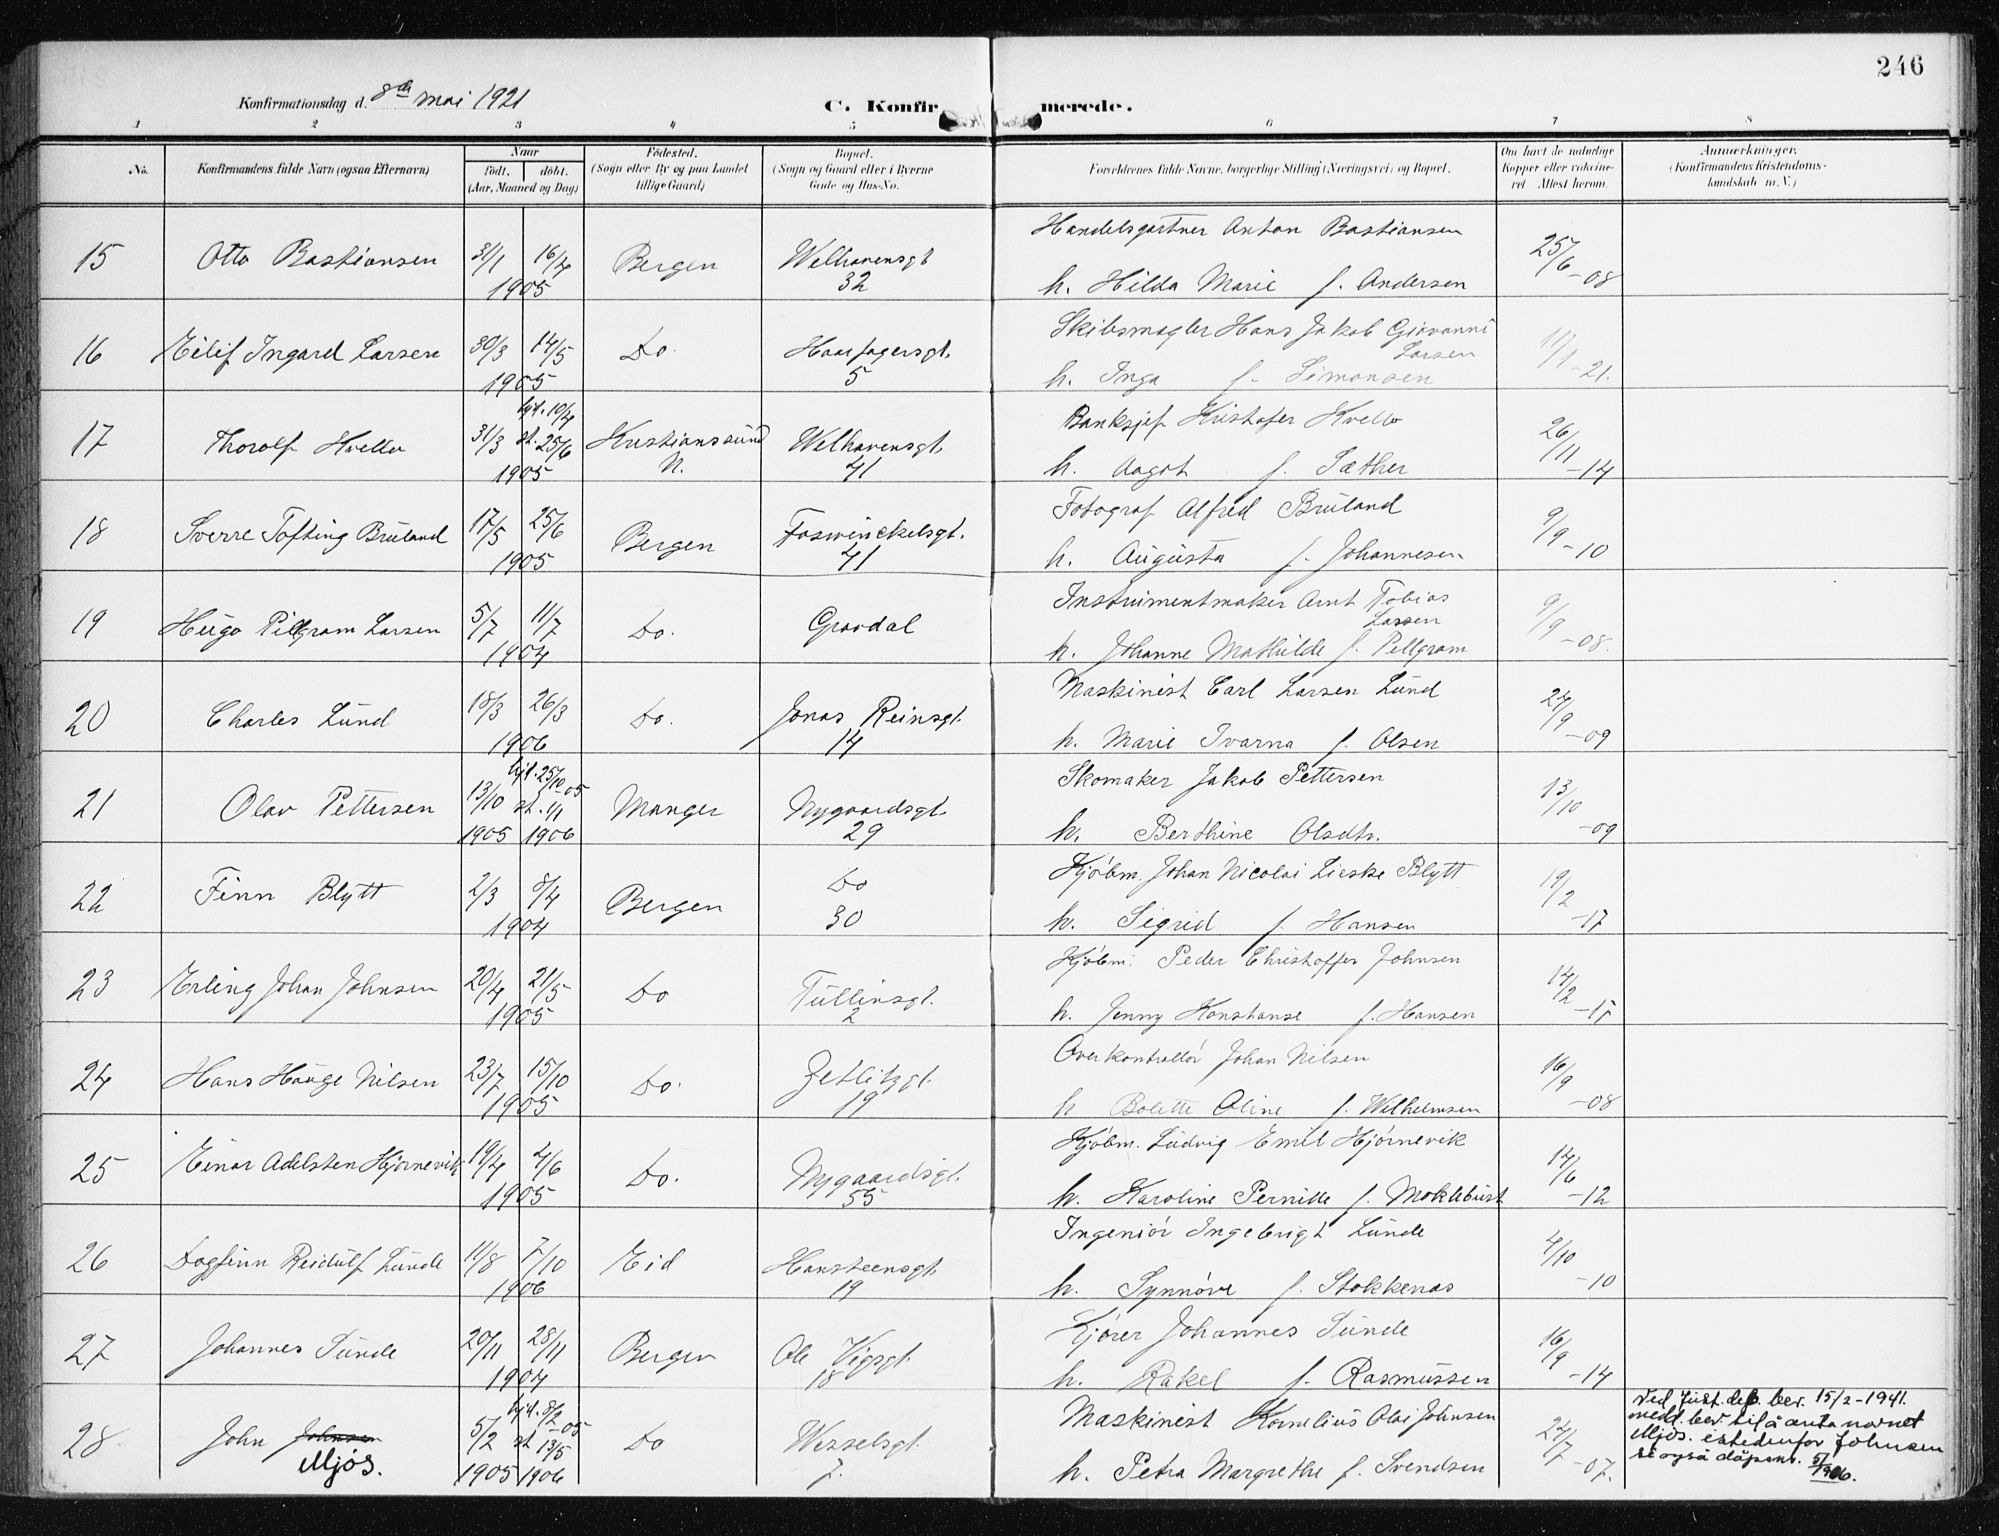 246
Konfirmationsdag d. 8de mai 1921
C. Konfirmerede.
1 2 3 4 5 6 7 8
No.
Konfirmandens fulde Navn (ogsaa Efternavn)
Naar
født. døbt.
(Aar, Maaned og Dag)
Fødested.
(Sogn eller By og paa Landet
tillige Gaard)
Bopæl.
(Sogn og Gaard eller i Byerne
Gade og Hus-No.
Forældrenes fulde Navne, borgerlige Stilling (Næringsvei) og Bopæl.
Om havt de naturlige
Kopper eller vakcine-
ret Attest herom.
Anmærkninger.
(Konfirmandens Kristendoms-
kundskab m. V.)
Handelsgartner Anton Bastiansen
15 Otto Bastiansen 31/1 16/4 Bergen Welhavensgt. 25/6
1905 32 h. Hilda Marie f. Andersen -08
Skibsmægler Hans Jakob Giovanni
16 Eilif Ingard Larsen 30/3 14/5 Do. Haarfagersgt. Larsen 11/1
1905 5 h. Inga f. Simonsen -21.
hjd. 10/4 Banksjef Kristofer Kvello
17 Thorolf Kvello 31/3 st. 25/6 Kristianssund Welhavensgt. 26/11
1905 N. 41 h. Aagot f. Sæther -14
Fotograf Alfred Bruland
18 Sverre Tofting Bruland 17/5 25/6 Bergen Foswinckelsgt. 9/9
1905 41 h. Augusta f. Johannesen -10
Instrumentmaker Arnt Tobias
19 Hugo Pillgram Larsen 5/7 11/7 Do. Gravdal Larsen 9/9
1904 h. Johanne Mathilde f. Pellgram -08.
Maskinist Carl Larsen Lund
20 Charles Lund 18/3 26/3 Do. Jonas Reinsgt. 24/9
1906 14 h. Marie Ivarna f. Olsen -09
hjd. 25/10 05 Skomaker Jakob Pettersen
21 Olav Pettersen 13/10 st. 1/1 Manger Nygaardsgt. 13/10
1905 1906 29 h. Berthine Olsdtr. -09
Kjøbm. Johan Nicolai Lieske Blytt
22 Finn Blytt 2/3 8/4 Bergen Do 19/2
1904 30 h. Sigrid f. Hansen -17
Kjøbm. Peder Christoffer Johnsen
23 Erling Johan Johnsen 20/4 21/5 Do Tullinsgt. 14/2
1905 2 h. Jenny Konstanse f. Hansen -17
Overkontrollør Johan Nilsen
24 Hans Hauge Nilsen 23/7 15/10 Do. Zetlitzgt. 16/9
1905 19 h Bolette Oline f. Wilhelmsen -08
Kjøbm. Ludvig Emil Hjørnevik
25 Einar Adelsten Hjørnevik 19/4 4/6 Do. Nygaardsgt. 14/6
1905 55 h. Karoline Pernille f. Moklebust -12
Ingeniør Ingebrigt Lunde
26 Dagfinn Reidulf Lunde 11/8 7/10 Eid Hansteensgt. 4/10
1906 19 h. Synnøve f. Stokkenæs -10
Kjører Johannes Sunde
27 Johannes Sunde 20/11 28/11 Bergen Ole Vigsgt. 16/9
1904 18 h. Rakel f. Rasmussen -14
hjd. 8/2 -05 Maskinist Kornelius Olai Johnsen
28 John Johnsen 5/2 st 13/5 Do Wesselsgt. 24/7
Mjøs. 1905 1906 7. h. Petra Margrethe f. Svendsen -07.
Ved Just. dep. bev. 15/2-1941.
medd. bev. til å anta navnet
Mjøs. istedenfor Johnsen
se også dåpsnr. 51/1906.